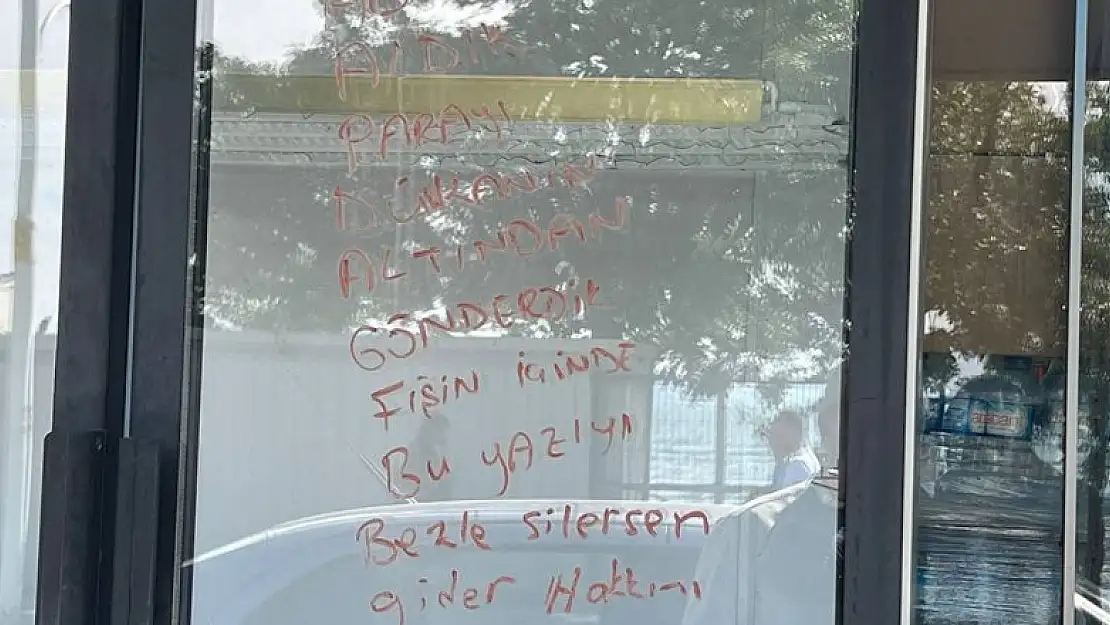 ALDIK
PARAYI
DÜKKANIN
ALTINDAN
GÖNDERDİK
FİŞİN İÇİNDE
Bu YAZIYI
Bezle silersen
gider Hakkını